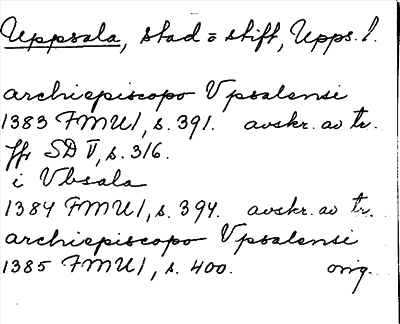 Uppsala, stad o stift, Upps. l.
archiepiscopo Vpsalensi
1383 FMU I, s. 391. avskr. av tr.
Jfr SD V, s. 316.
i Vbsala
1384 FMU I, s. 394. avskr. av tr.
archiepiscopo Vpsalensi
1385 FMU I, s. 400. orig.